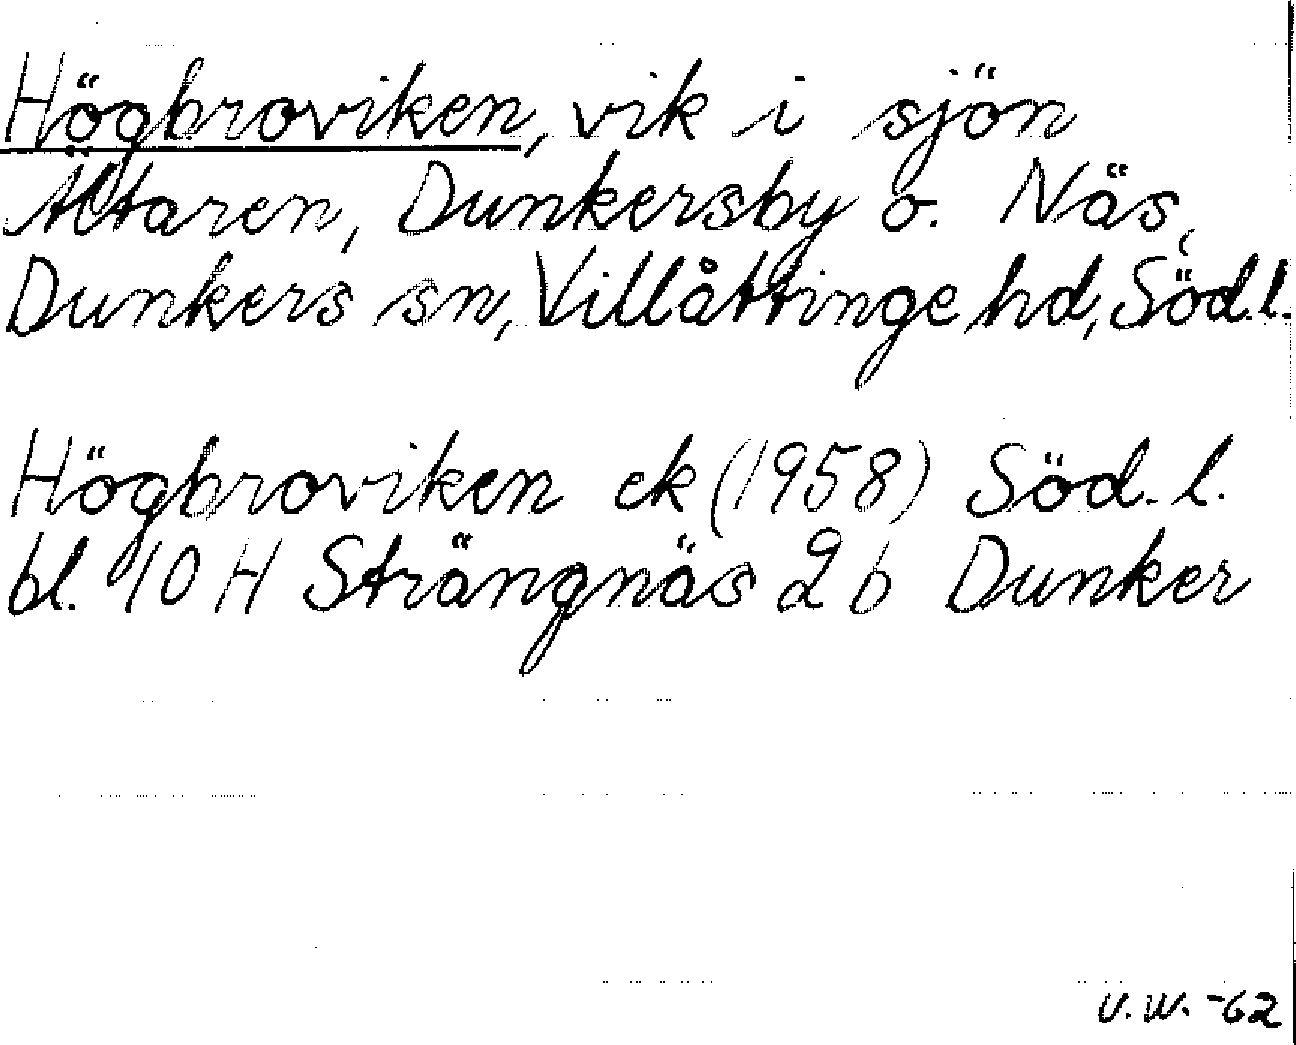 Högbroviken, vik i sjön
Ältaren, Dunkersby o. Näs,
Dunkers sn, Villåttinge hd, Söd.l.
Högbroviken ek (1958) Söd. l.
bl. 10 H Strängnäs 2 b Dunker
V.W. -62